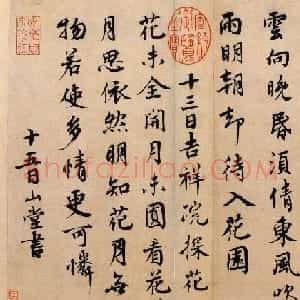 雲向晚昏須倩東風吹
雨明朝却待入花園
十三日吉祥院探花
花未全開月未圓看花
月思依然明知花月無
物若使多情更可憐
十五日山堂書